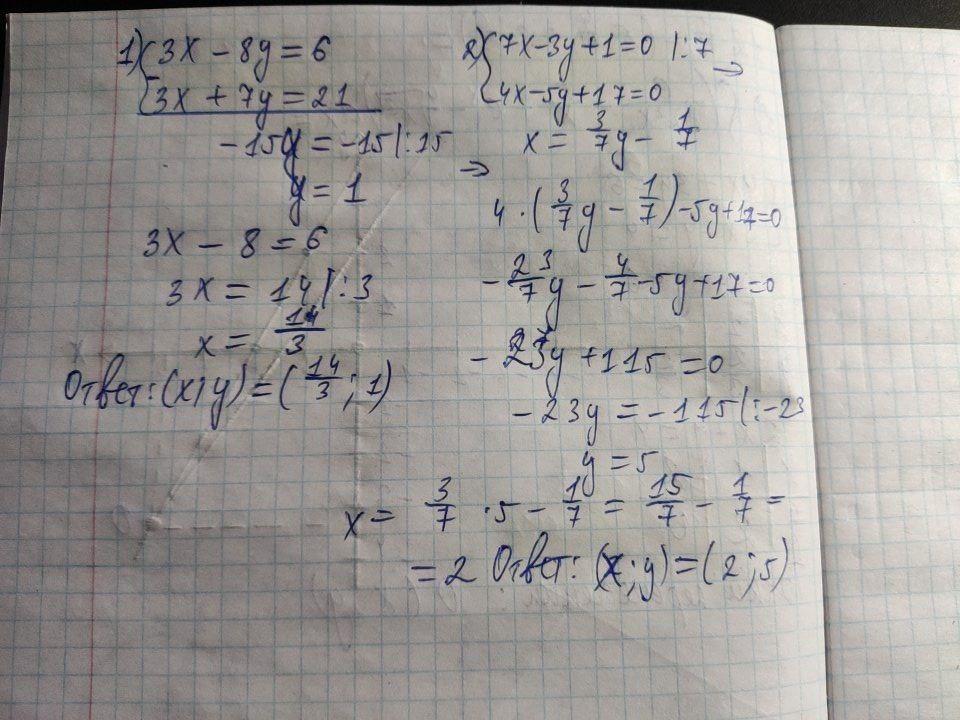 1) { 3x - 8y = 6
3x + 7y = 21
-15y = -15 |:15
y = 1
3x - 8 = 6
3x = 14 |:3
x = 14/3
Ответ: (x;y) = (14/3; 1)
2) { 7x-3y+1=0 |:7 ⇒
4x-5y+17=0
x = 3/7 y - 1/7
⇒
4·(3/7 y - 1/7)-5y+17=0
- 23/7 y - 4/7 -5y+17=0
- 23y +115 =0
-23y = -115 |:-23
y = 5
x = 3/7 ·5 - 1/7 = 15/7 - 1/7 =
= 2 Ответ: (x;y)=(2;5)